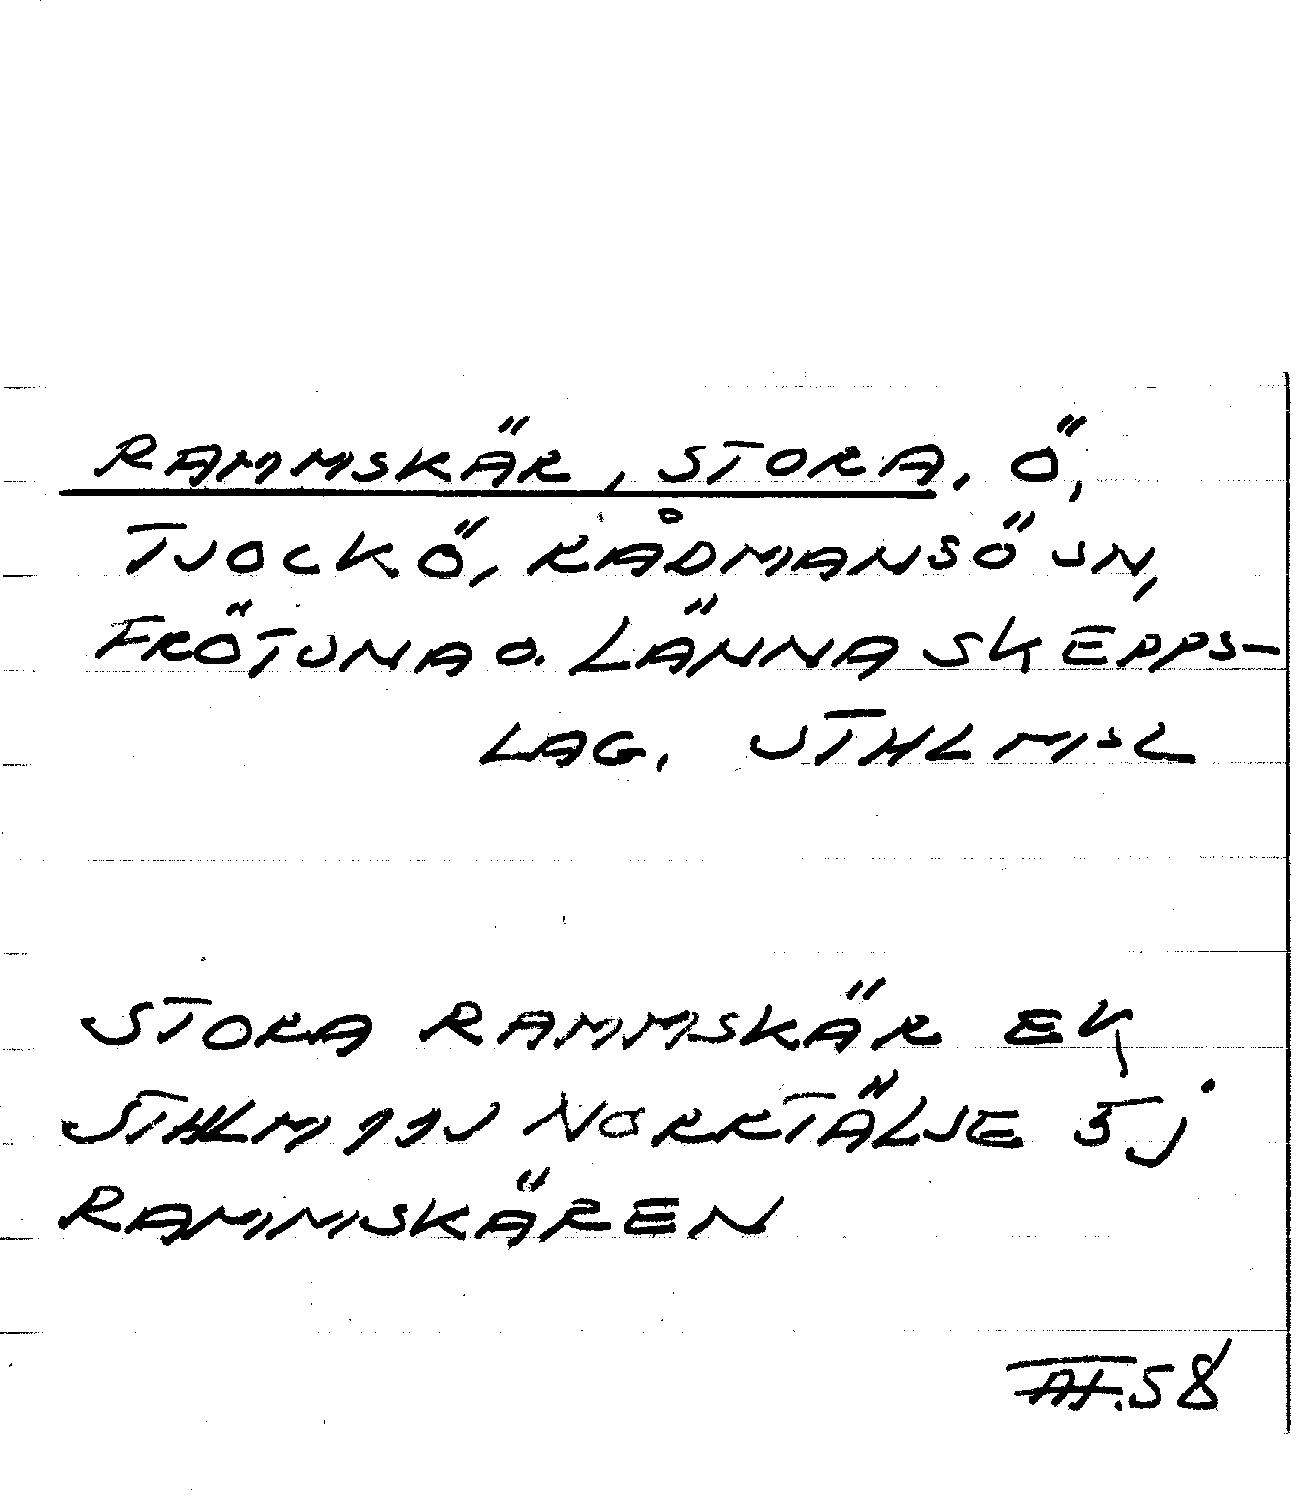 RAMMSKÄR, STORA, Ö,
TJOCKÖ, RÅDMANSÖ SN,
FRÖTUNA O. LÄNNA SKEPPS-
LAG, STHLMSL
STORA RAMMSKÄR EK
STHLM 11J NORRTÄLJE 5j
RAMMSKÄREN
58